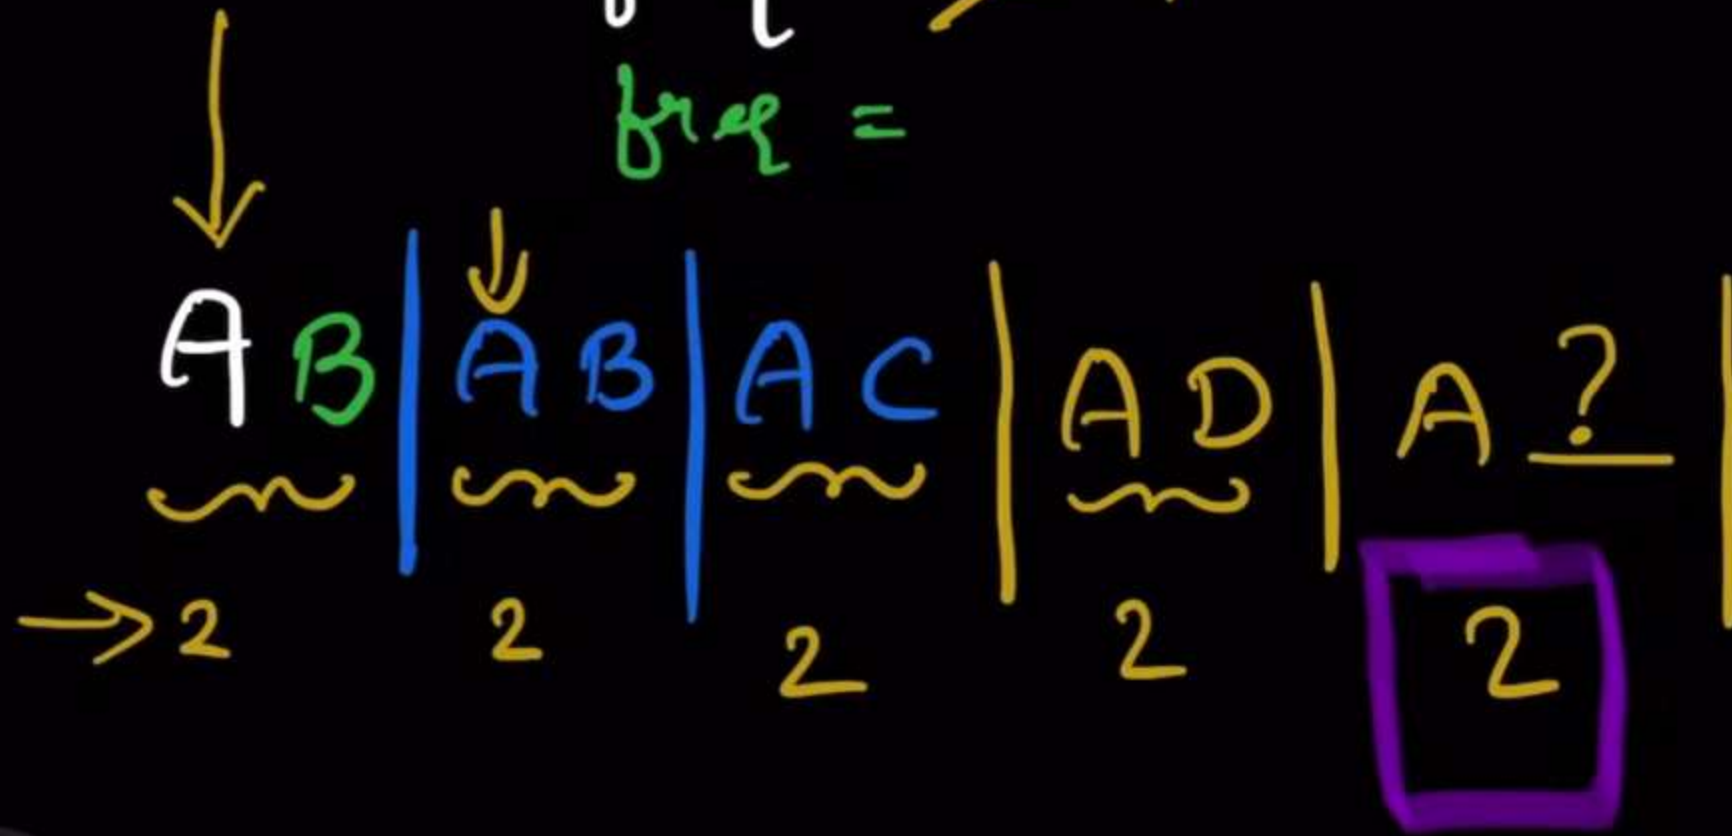 freq =
A B | A B | A C | A D | A ? |
→ 2 2 2 2 2